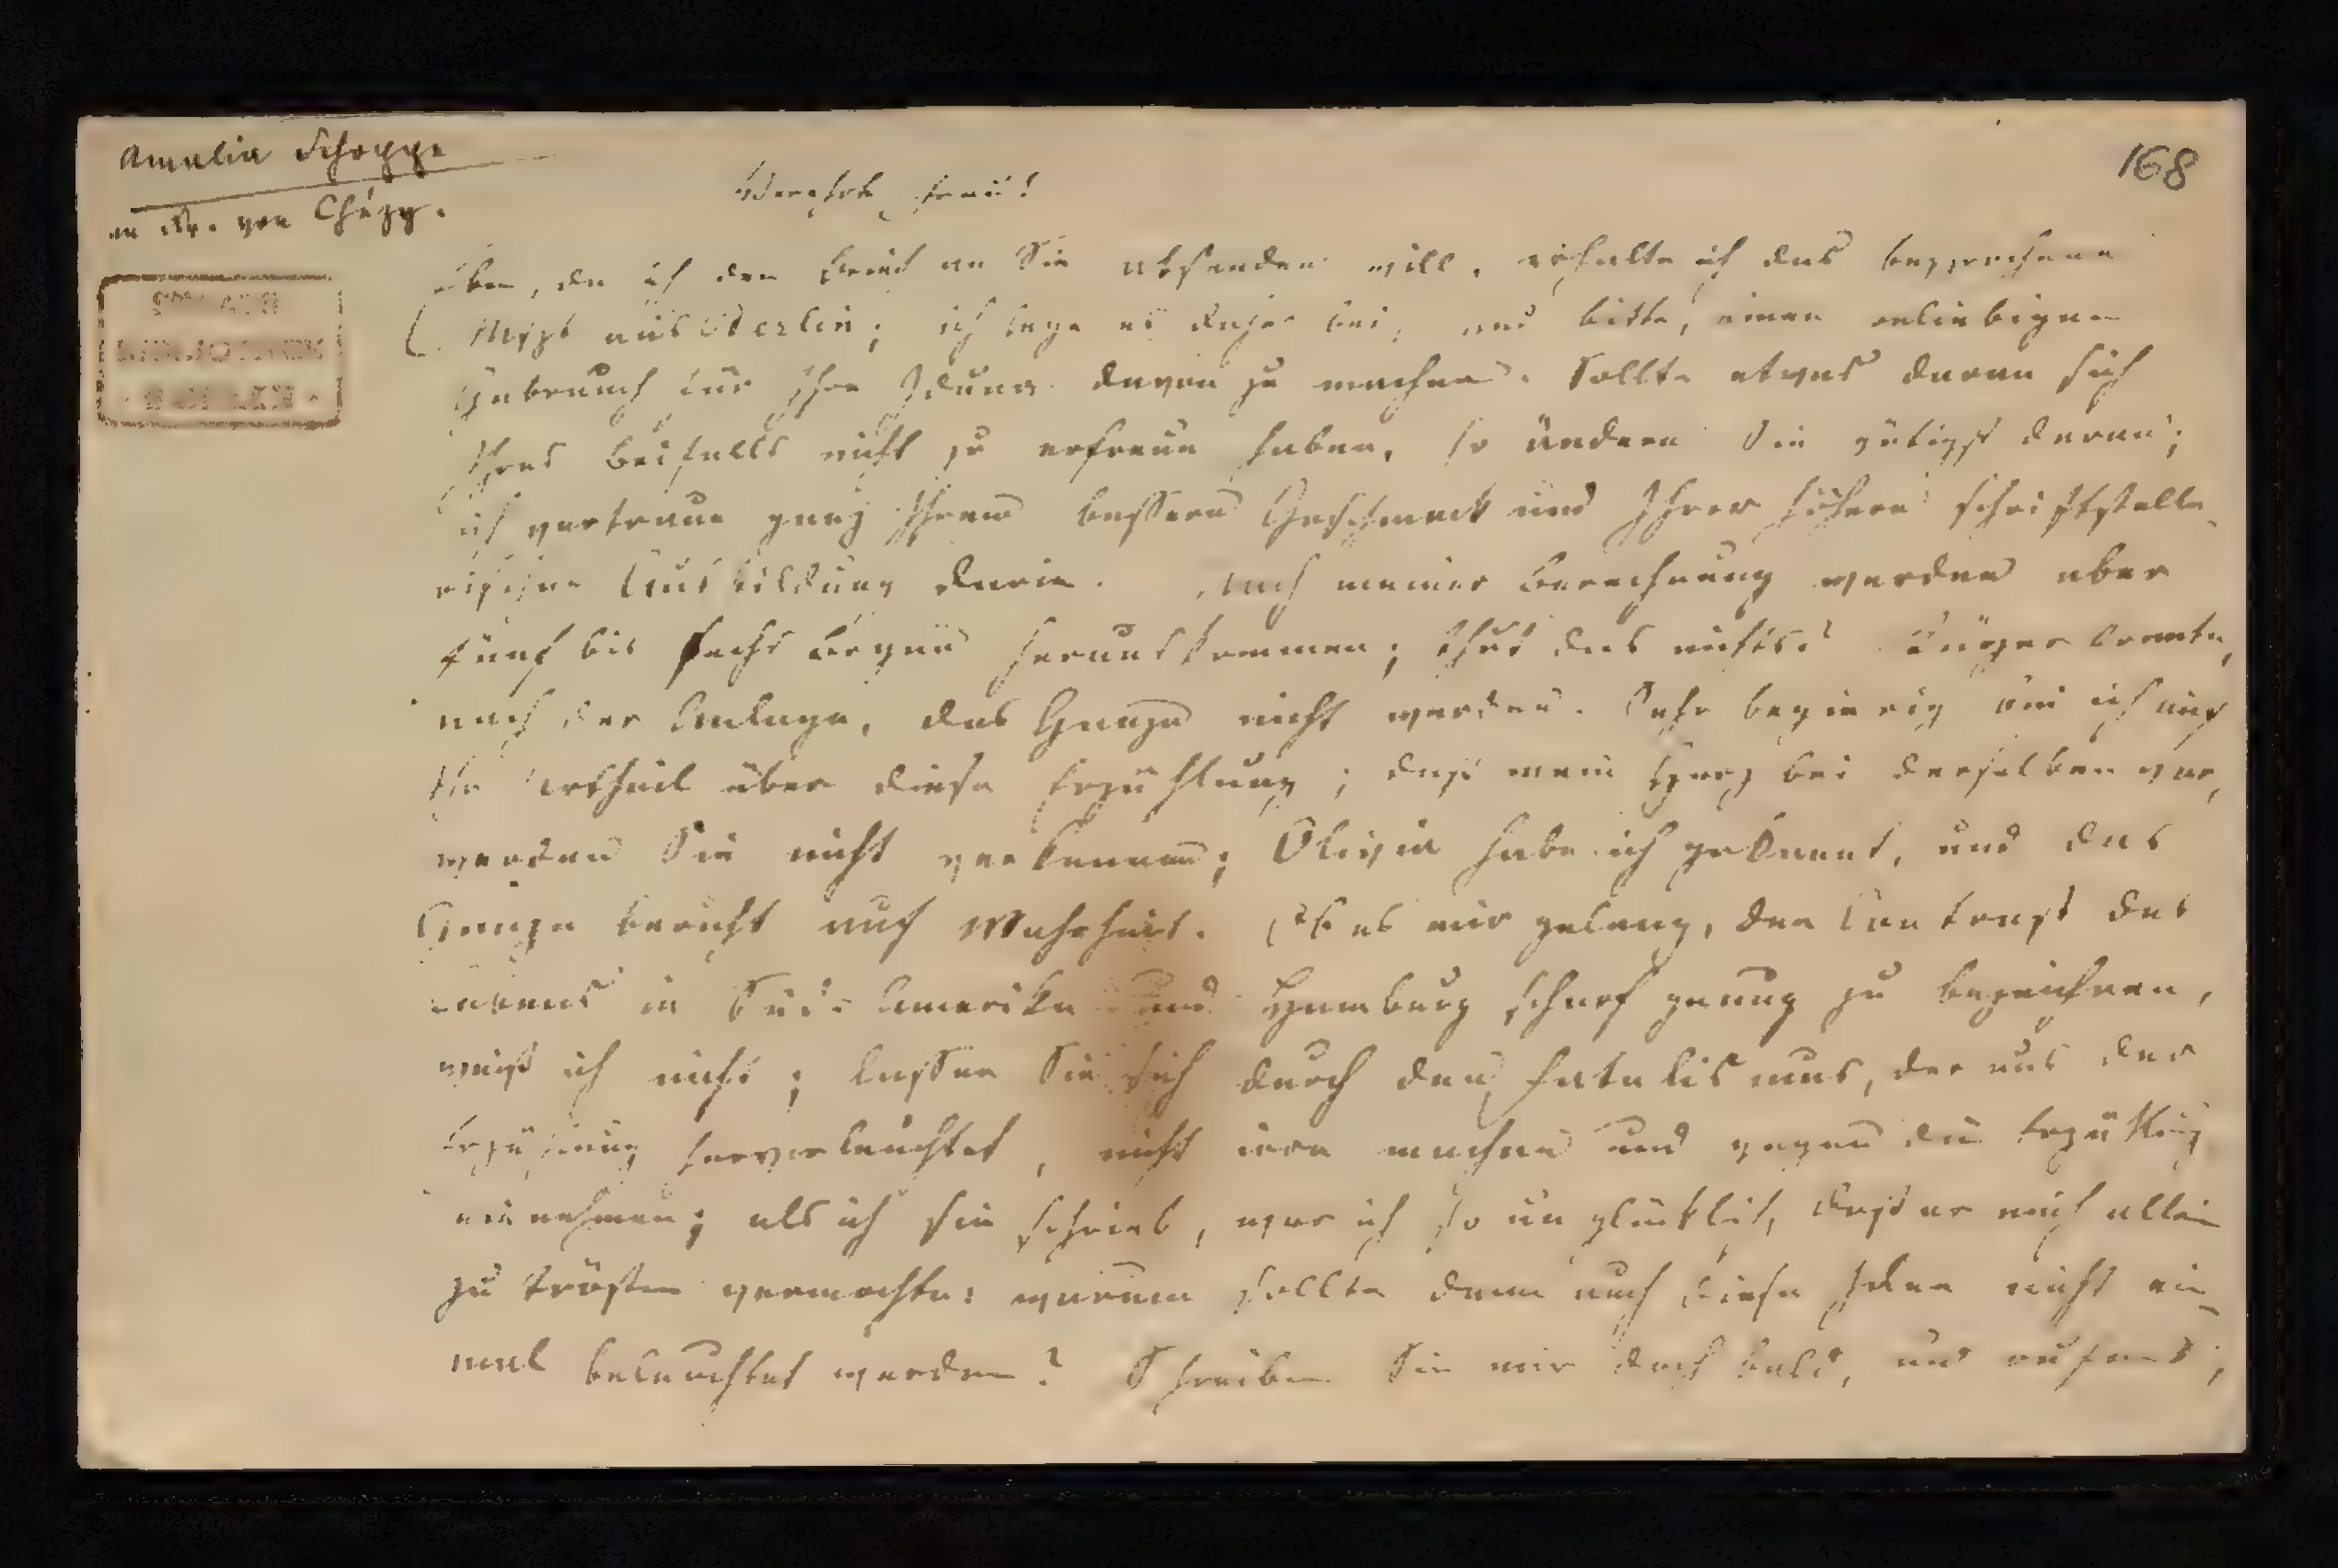 Amalia Schoppe
an Fr. von Chézy.
168
Verehrte Frau!
Eben, da ich den Brief an Sie absenden will, erhalte ich das besprochene
Mspt aus Berlin; ich lege es daher bei, und bitte, einen beliebigen
Gebrauch für Ihre Iduna davon zu machen. Sollte etwas daran sich
Ihres Beifalls nicht zu erfreun haben, so ändern Sie gütigst daran;
ich vertraue ganz Ihrem bessern Geschmack und Ihrer höhern schriftstelle-
rischen Ausbildung darin. Nach meiner Berechnung werden aber
fünf bis sechs Bogen herauskommen; thut das nichts? Kürzer konnte,
nach der Anlage, das Ganze nicht werden. Sehr begierig bin ich auf
Ihr Urtheil über diese Erzählung; daß mein Herz bei derselben war,
werden Sie nicht verkennen; Olivia habe ich gekannt, und das
Ganze beruht auf Wahrheit. Ob es mir gelang, den Contrast des
Lebens in Süd-Amerika und Hamburg scharf genug zu bezeichnen,
weiß ich nicht; lassen Sie sich durch den Fatalismus, der aus der
Erzählung hervorleuchtet, nicht irre machen und gegen die Erzählung
einnehmen; als ich sie schrieb, war ich so unglücklich, daß er mich allein
zu trösten vermochte: warum sollte denn auch diese Idee nicht ein-
mal beleuchtet werden? Schreiben Sie mir doch bald, und